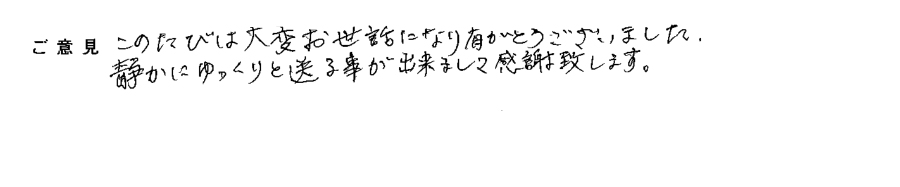 ご意見 このたびは大変お世話になり有がとうございました.
静かにゆっくりと送る事が出来まして感謝致します。